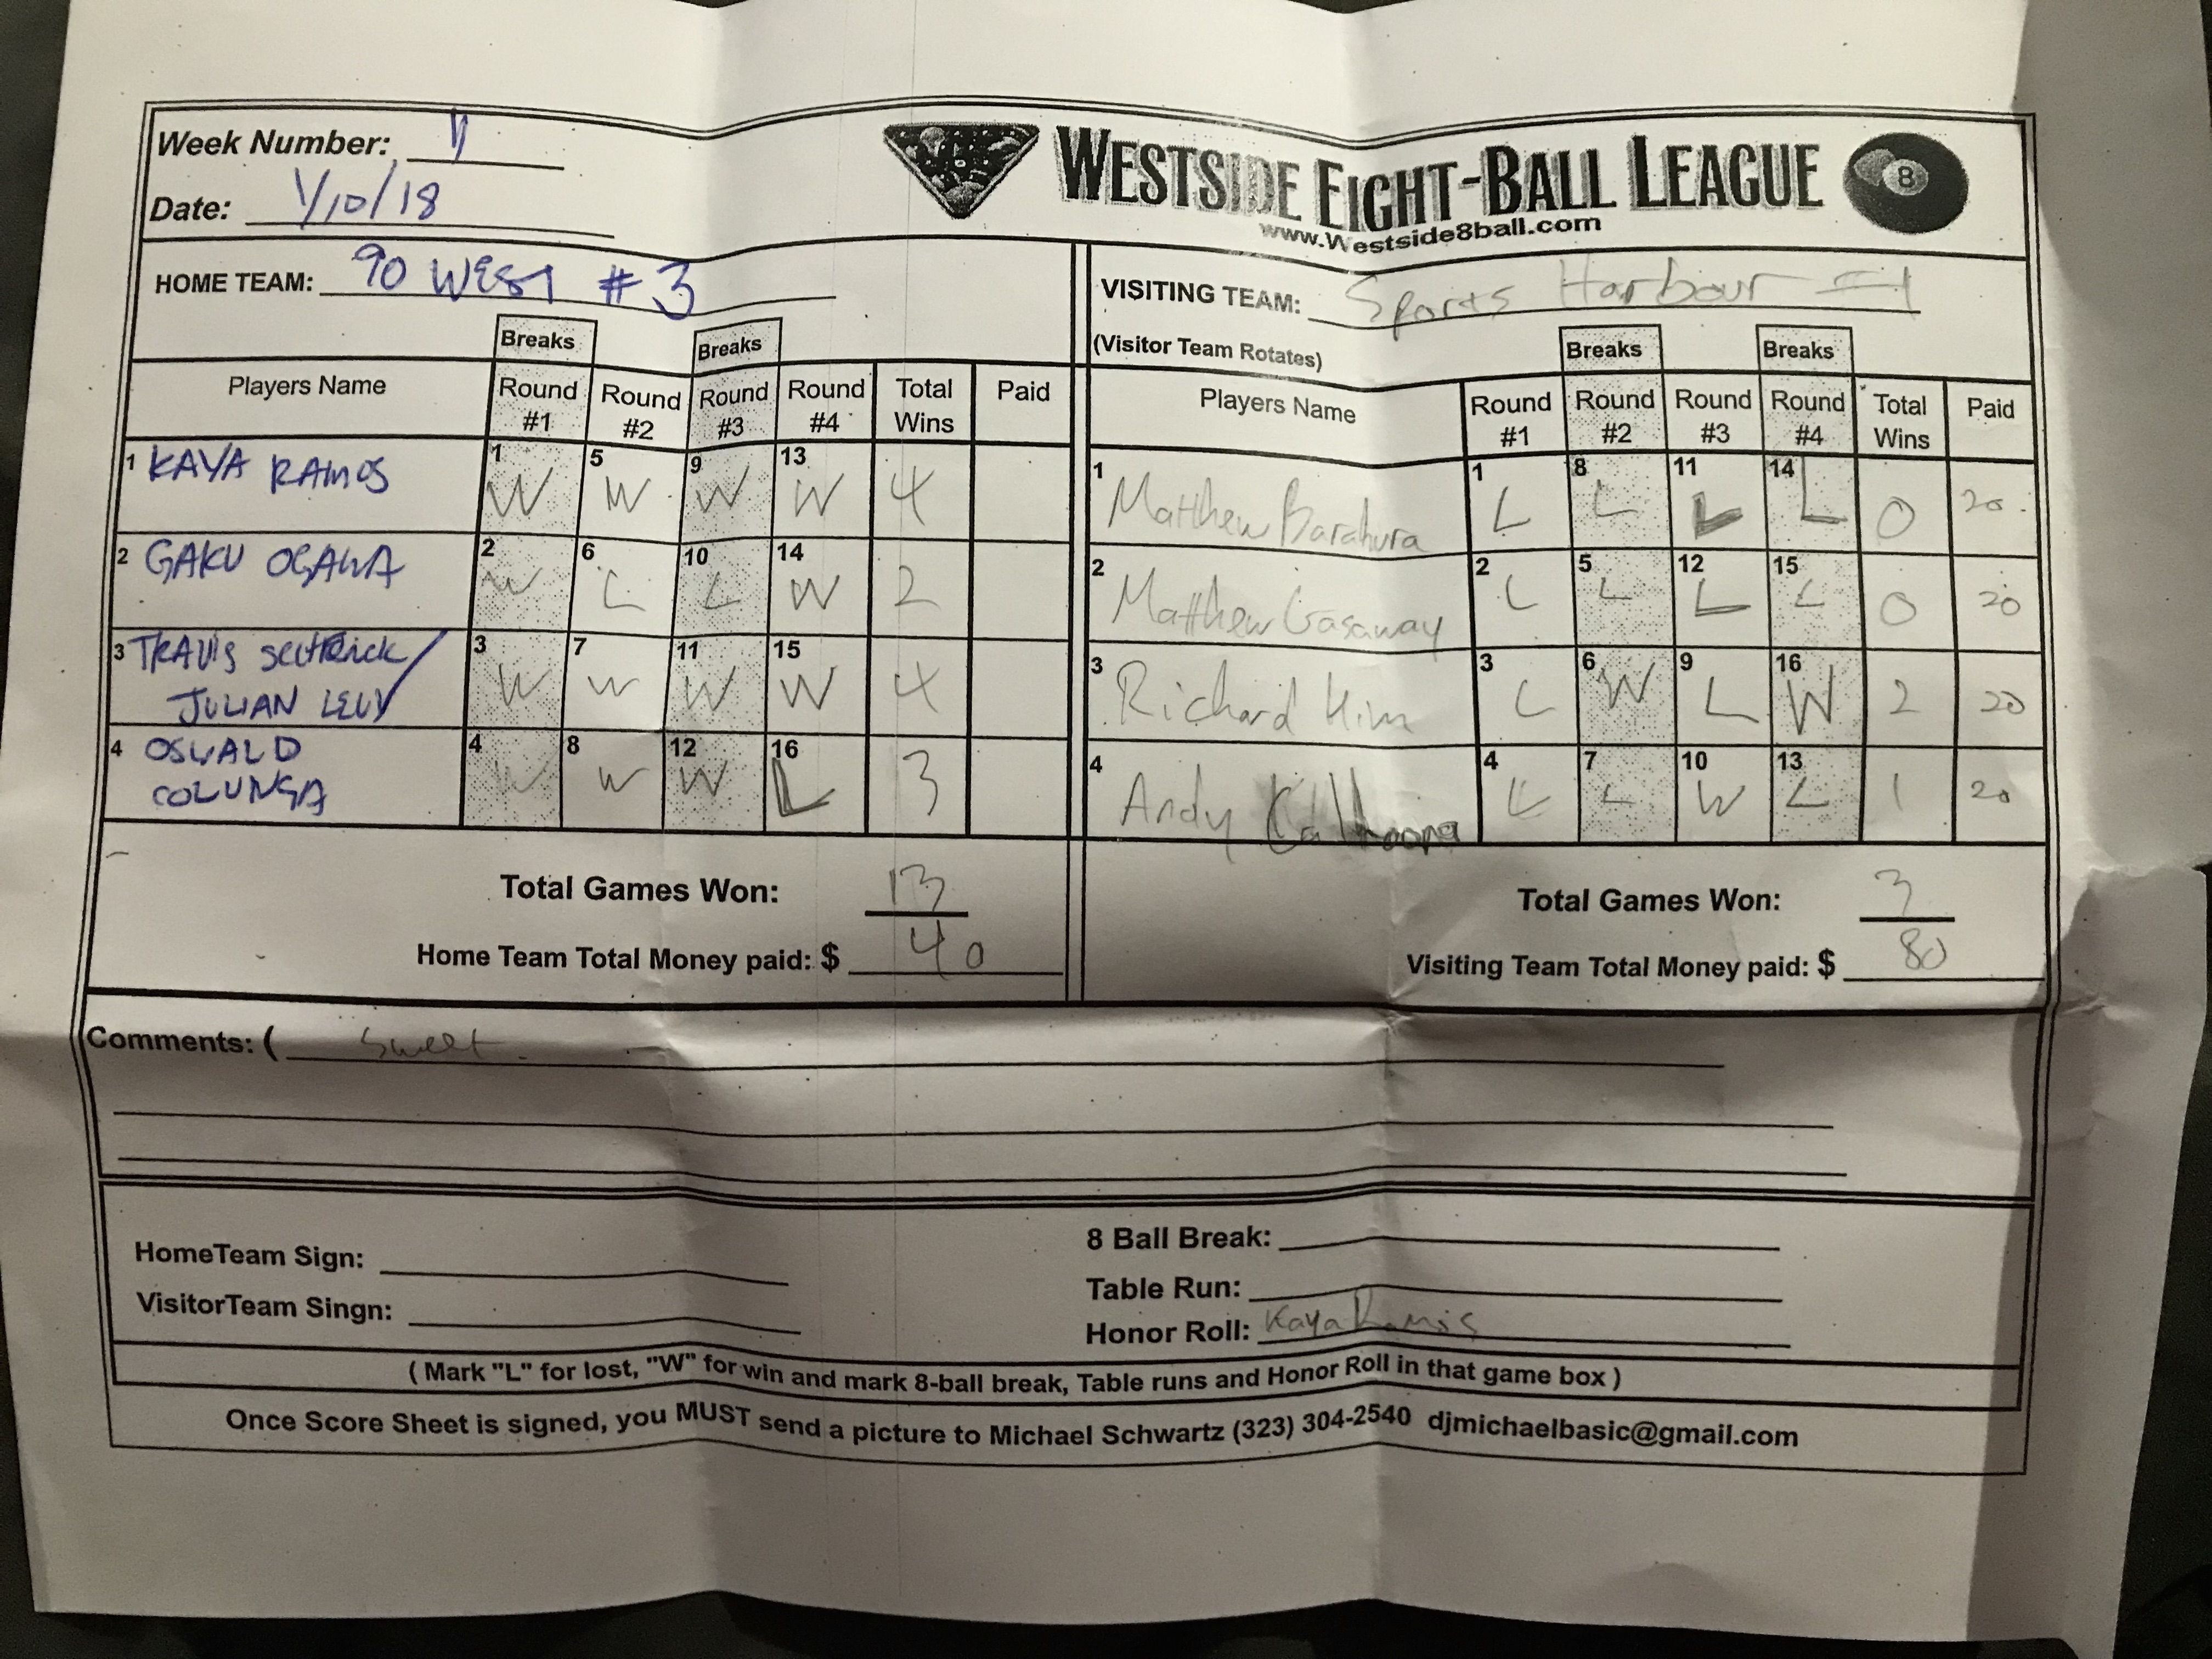 Week Number: 11
Date: 1/10/18
WESTSIDE EIGHT-BALL LEAGUE 8
www.Westside8ball.com
HOME TEAM: 90 WEST #3
VISITING TEAM: Sports Harbour #1
(Visitor Team Rotates)
Breaks Breaks Breaks Breaks
Players Name Round #1 Round #2 Round #3 Round #4 Total Wins Paid Players Name Round #1 Round #2 Round #3 Round #4 Total Wins Paid
1 KAYA RAMOS 1 W 5 W 9 W 13 W 4 1 Matthew 1 L 8 L 11 L 14 L 0 20
2 GAKU OGAWA 2 W 6 L 10 L 14 W 2 2 Matthew Gasaway 2 L 5 L 12 L 15 L 0 20
3 TRAVIS 3 W 7 W 11 W 15 W 4 3 Richard Kim 3 L 6 W 9 L 16 W 2 20
JULIAN LEVY
4 OSWALD 4 W 8 W 12 W 16 L 3 4 Andy 4 L 7 L 10 W 13 L 1 20
COLUNGA
Total Games Won: 13 Total Games Won: 3
Home Team Total Money paid: $ 40 Visiting Team Total Money paid: $ 80
Comments: ( Sweet.
HomeTeam Sign:
VisitorTeam Singn:
8 Ball Break:
Table Run:
Honor Roll: Kaya Ramos
( Mark "L" for lost, "W" for win and mark 8-ball break, Table runs and Honor Roll in that game box )
Once Score Sheet is signed, you MUST send a picture to Michael Schwartz (323) 304-2540 djmichaelbasic@gmail.com